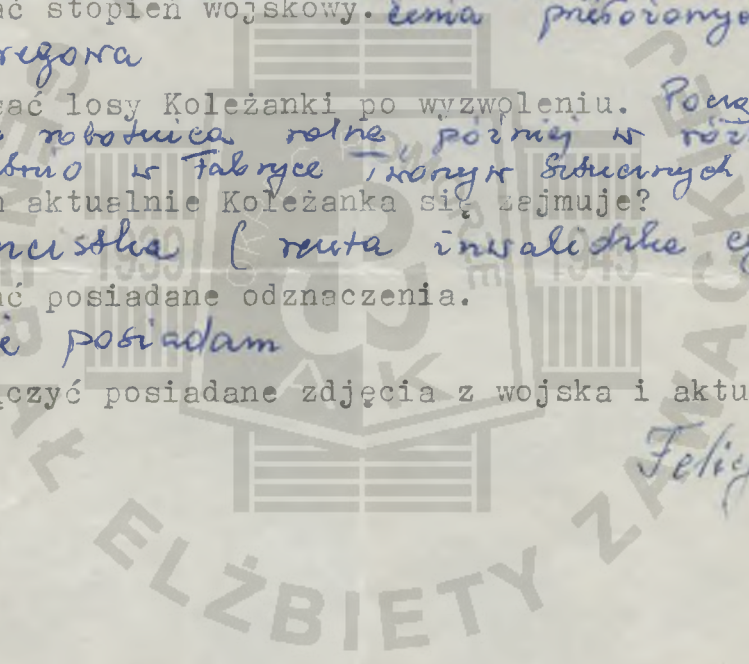 ać stopień wojskowy. cenia przełożonyc
regowa
sać losy Koleżanki po wyzwoleniu. Począ
robotnica rolna, później w róż
w Fabryce Tworzyw Sztucznych
m aktualnie Koleżanka się zajmuje?
ncistka ( renta inwalidzka
ać posiadane odznaczenia.
ie posiadam
ączyć posiadane zdjęcia z wojska i aktu
Felic
1939 1945
AK
ELŻBIETY ZAWACKIEJ